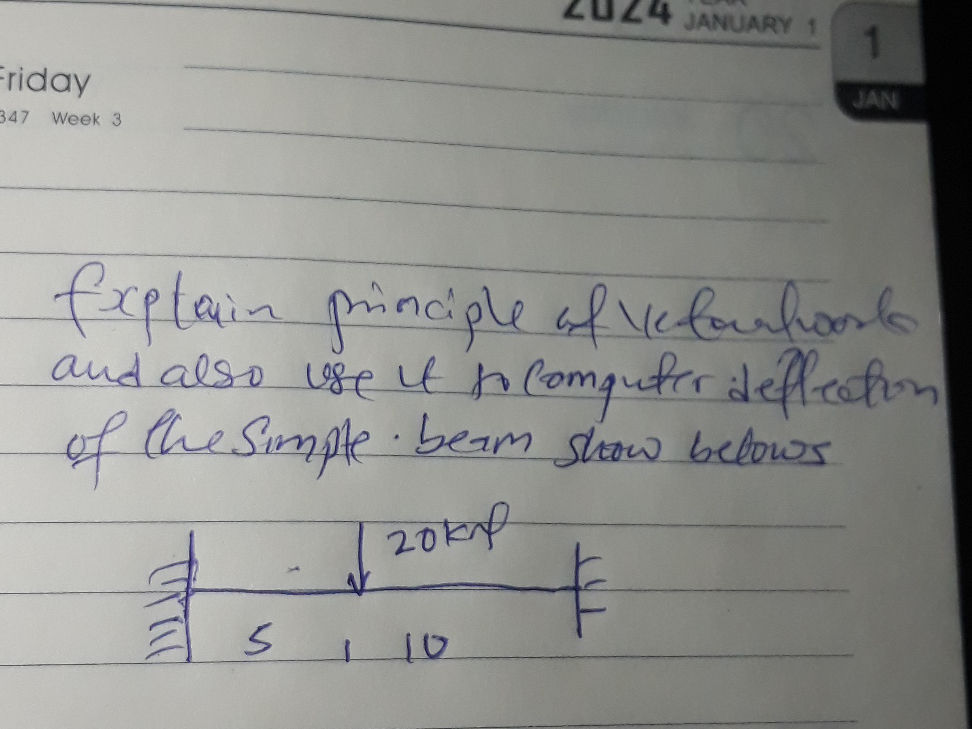 2024
JANUARY 1
1
JAN
Friday
347 Week 3
Explain principle of
and also use it to computer deflection
of the simple. beam show belows
20kN
5 10